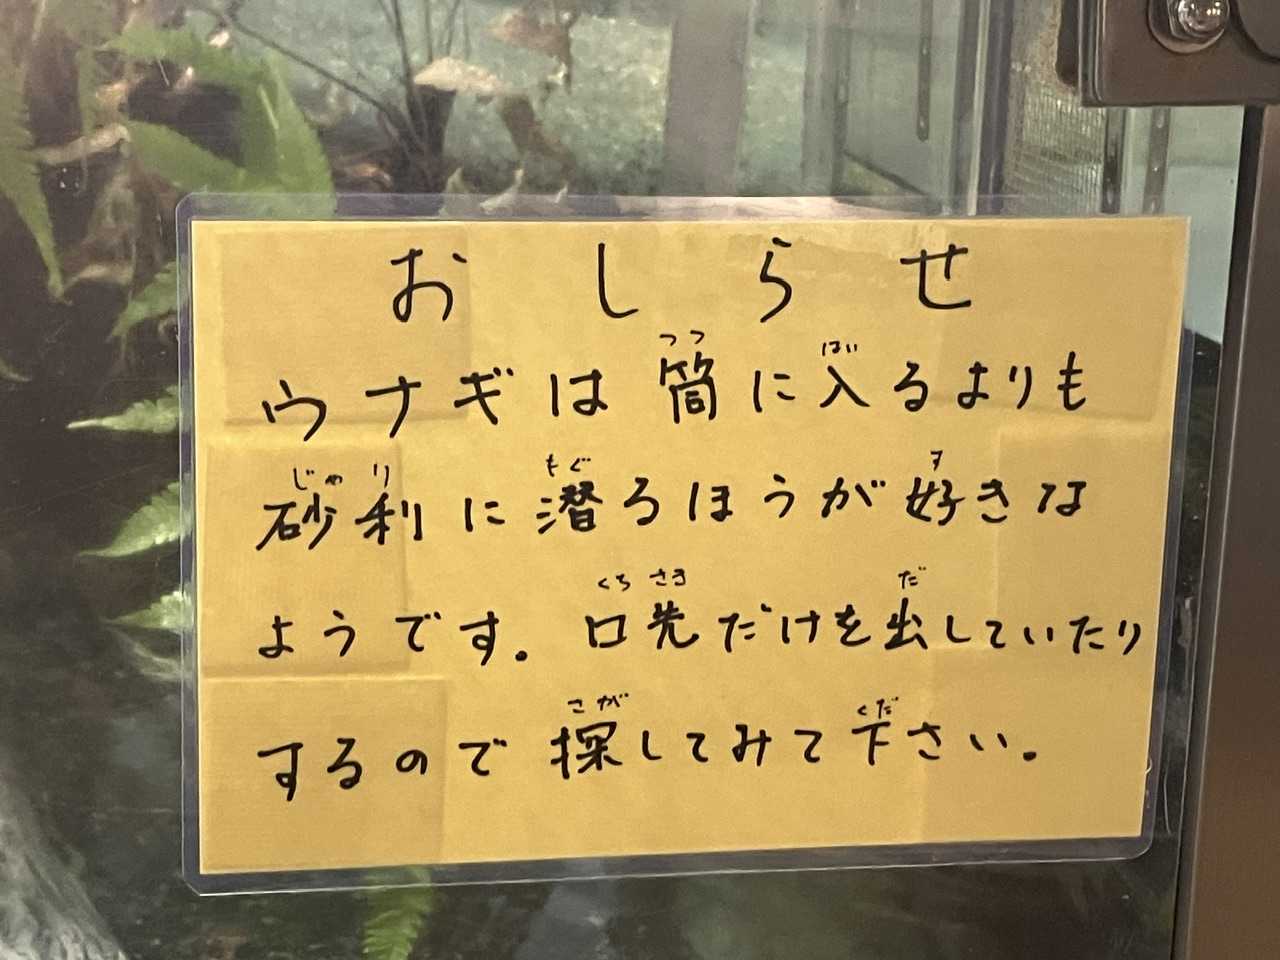 おしらせ
つつ はい
ウナギは筒に入るよりも
じゃり もぐ す
砂利に潜るほうが好きな
くち さき だ
ようです。口先だけを出していたり
こが くだ
するので探してみて下さい。